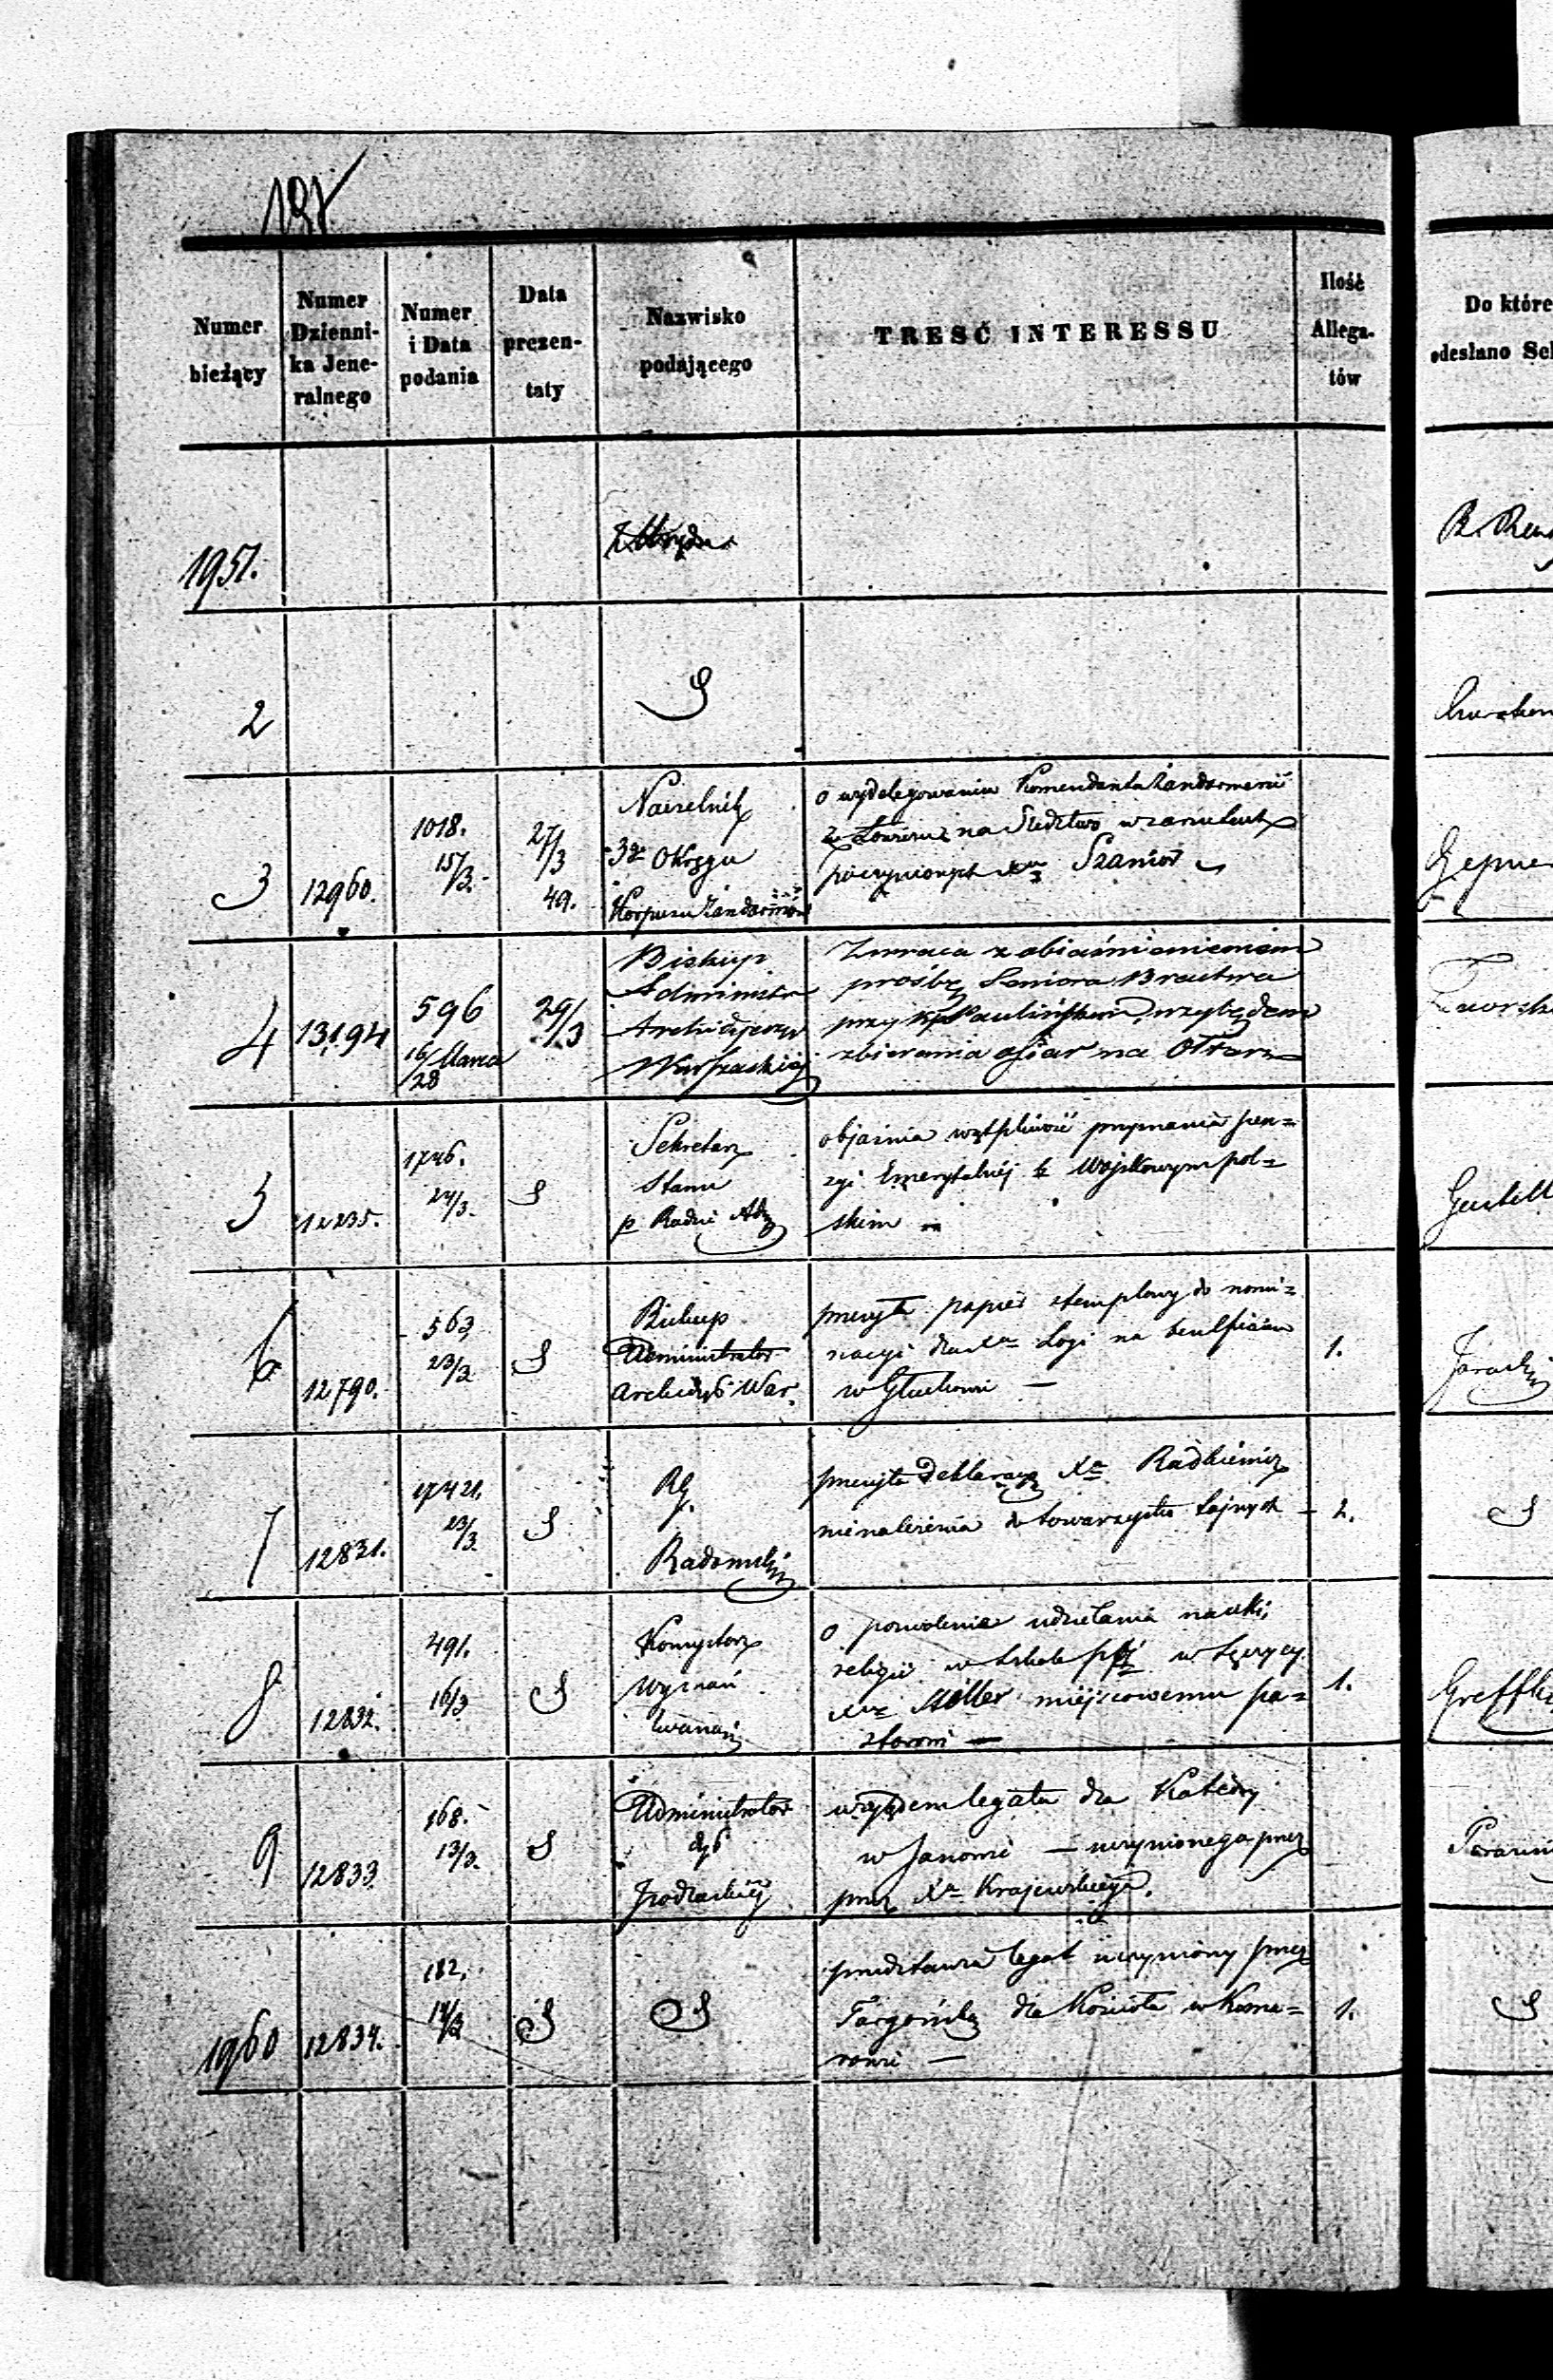 197
Numer bieżący
Numer Dzienni-ka Jene-ralnego
Numer i Data podania
Data prezen-taty
Nazwisko podającego
TREŚĆ INTERESSU
Ilość Allega-tów
Do które
odesłano
1951.
2
3
12960.
1018.
15/3.
27/3
49.
Naczelnik
3go Okręgu
Korpusu Żandarmów
o wydelegowaniu Komendanta Żandarmerii
na Śledztwo
poczynionych Xu
4
13194
596
16/28 Marca
29/3
Biskup
Administr
Archidyecezyi
Warszawskiej
Zwraca z obiaśnieniem
prośbę Seniora Bractwa
przy względem
zbierania ofiar na Ołtarz
5
12235.
1746.
24/3.
S
Sekretarz
Stanu
p Radzie Adm
objaśnia wątpliwość przyznania pen=
zyi Emerytalnéj Wojskowym pol=
skim
6
12790.
563
23/3
S
Biskup
Administrator
Archidyec War.
przesyła papier stemplowy do nomi=
nacyi dla Xa Łogi na beneficium
w Głuchowie —
1.
7
12831.
17421.
23/3.
S
RG.
Radomski
przesyła deklaracyą Xa Radkiewicz
nienależenia do towarzystw tajnych
2.
S
8
12832.
491.
16/3
S
Konsystorz
Wyznań
Ewang
o pozwolenie udzielania nauki
religii w szkole w Łęczycy
Xu Müller miejscowemu pa=
storowi —
1.
9
12833.
168.
13/3.
S
Administrator
dyec
Podlaskiéj
względem legatu dla Katedry
w Janowie — uczynionego przez
przez Xa Krajewskiego.
1960
12834.
182.
14/3
S
S
przedstawia legat uczyniony przez
dla Kościoła w Koma=
rowie —
1.
S